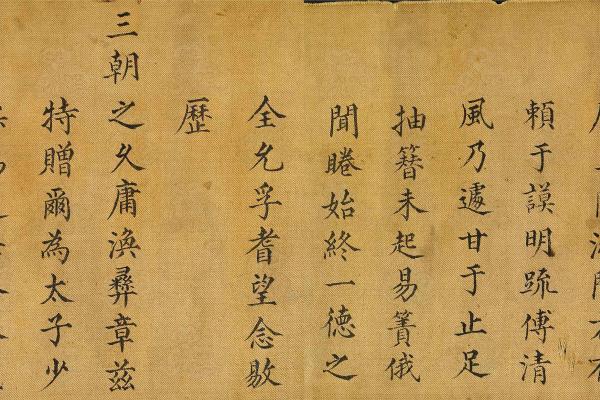 頼于謨明䟽傅清
風乃遽甘于止足
抽簪未起易簀俄
聞睠始終一德之
全允孚耆望念敭
歷
三朝之久庸渙彝章茲
特贈爾為太子少